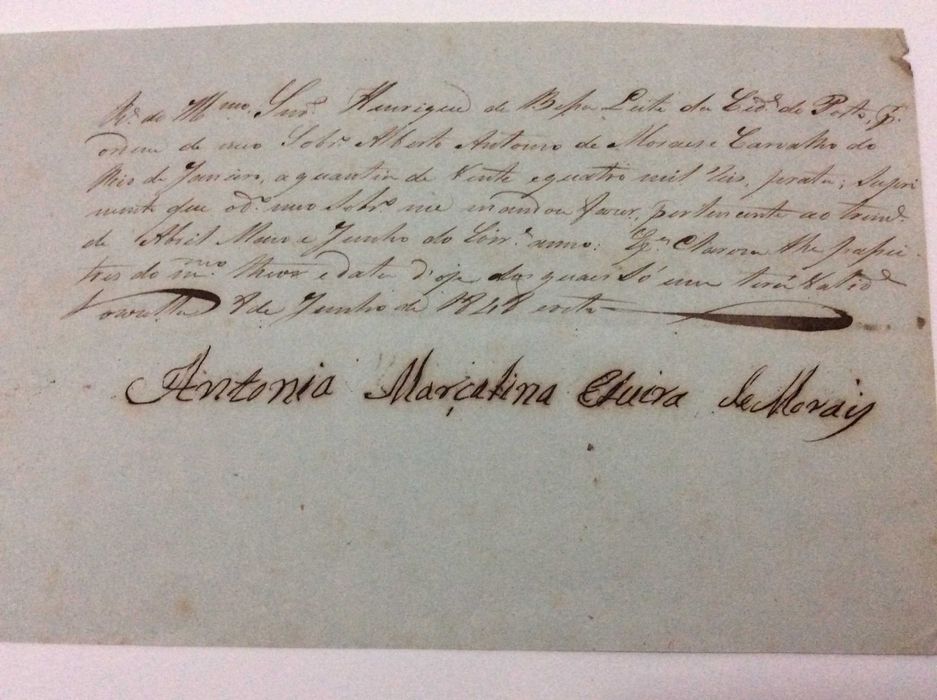 R. do Ill.mo Snr. Henrique de Bessa Leite da Cid.e do Porto, P.
ordem de meu Sobr.o Alberto Antonio de Moraes e Carvalho do
Rio de Janeiro, a quantia de Vinte e quatro mil reis, prata, supri
mento que o d.o meo Sobr.o me mandou fazer, pertencente ao trim.e
de Abril Maio e Junho do Corr.e anno: E p.r Clareza lhe passei
tres do m.mo theor e data d'oje dos quaes só um terá valid.e
8 de Junho de 1848 e oito
Antonia Marçalina de Morais